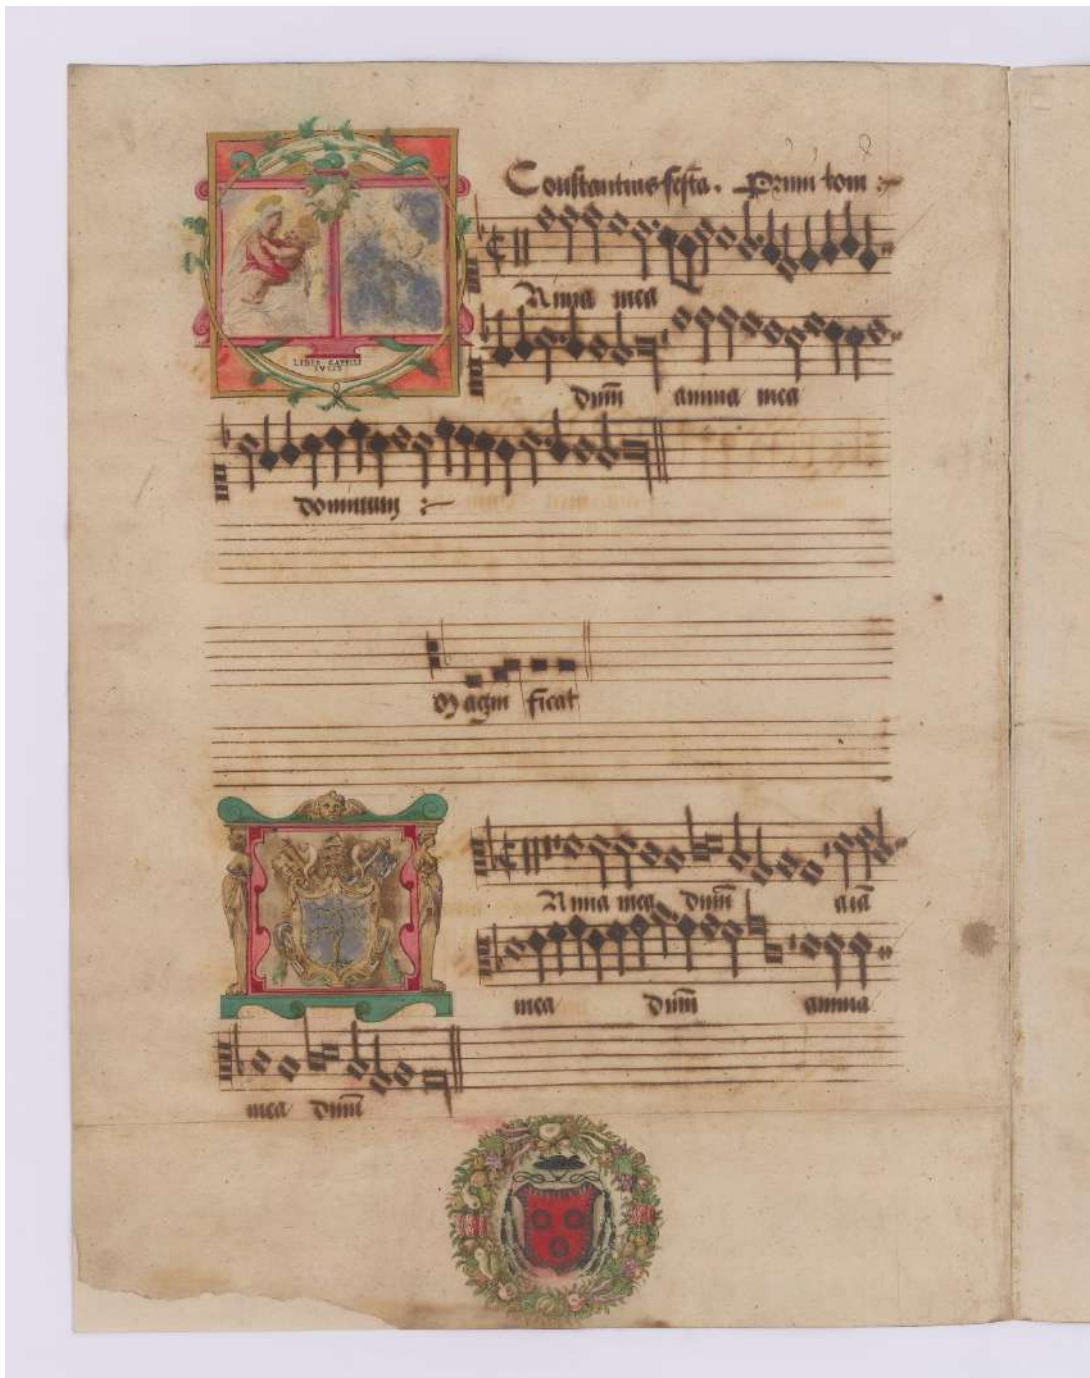 Constantius festa. Primi toni
LIBER CAPELLE
Anima mea
dnm̄ anima mea
dominum
Magni ficat
Anima mea dnm̄ aīa
mea dnm̄ anima
mea dnm̄